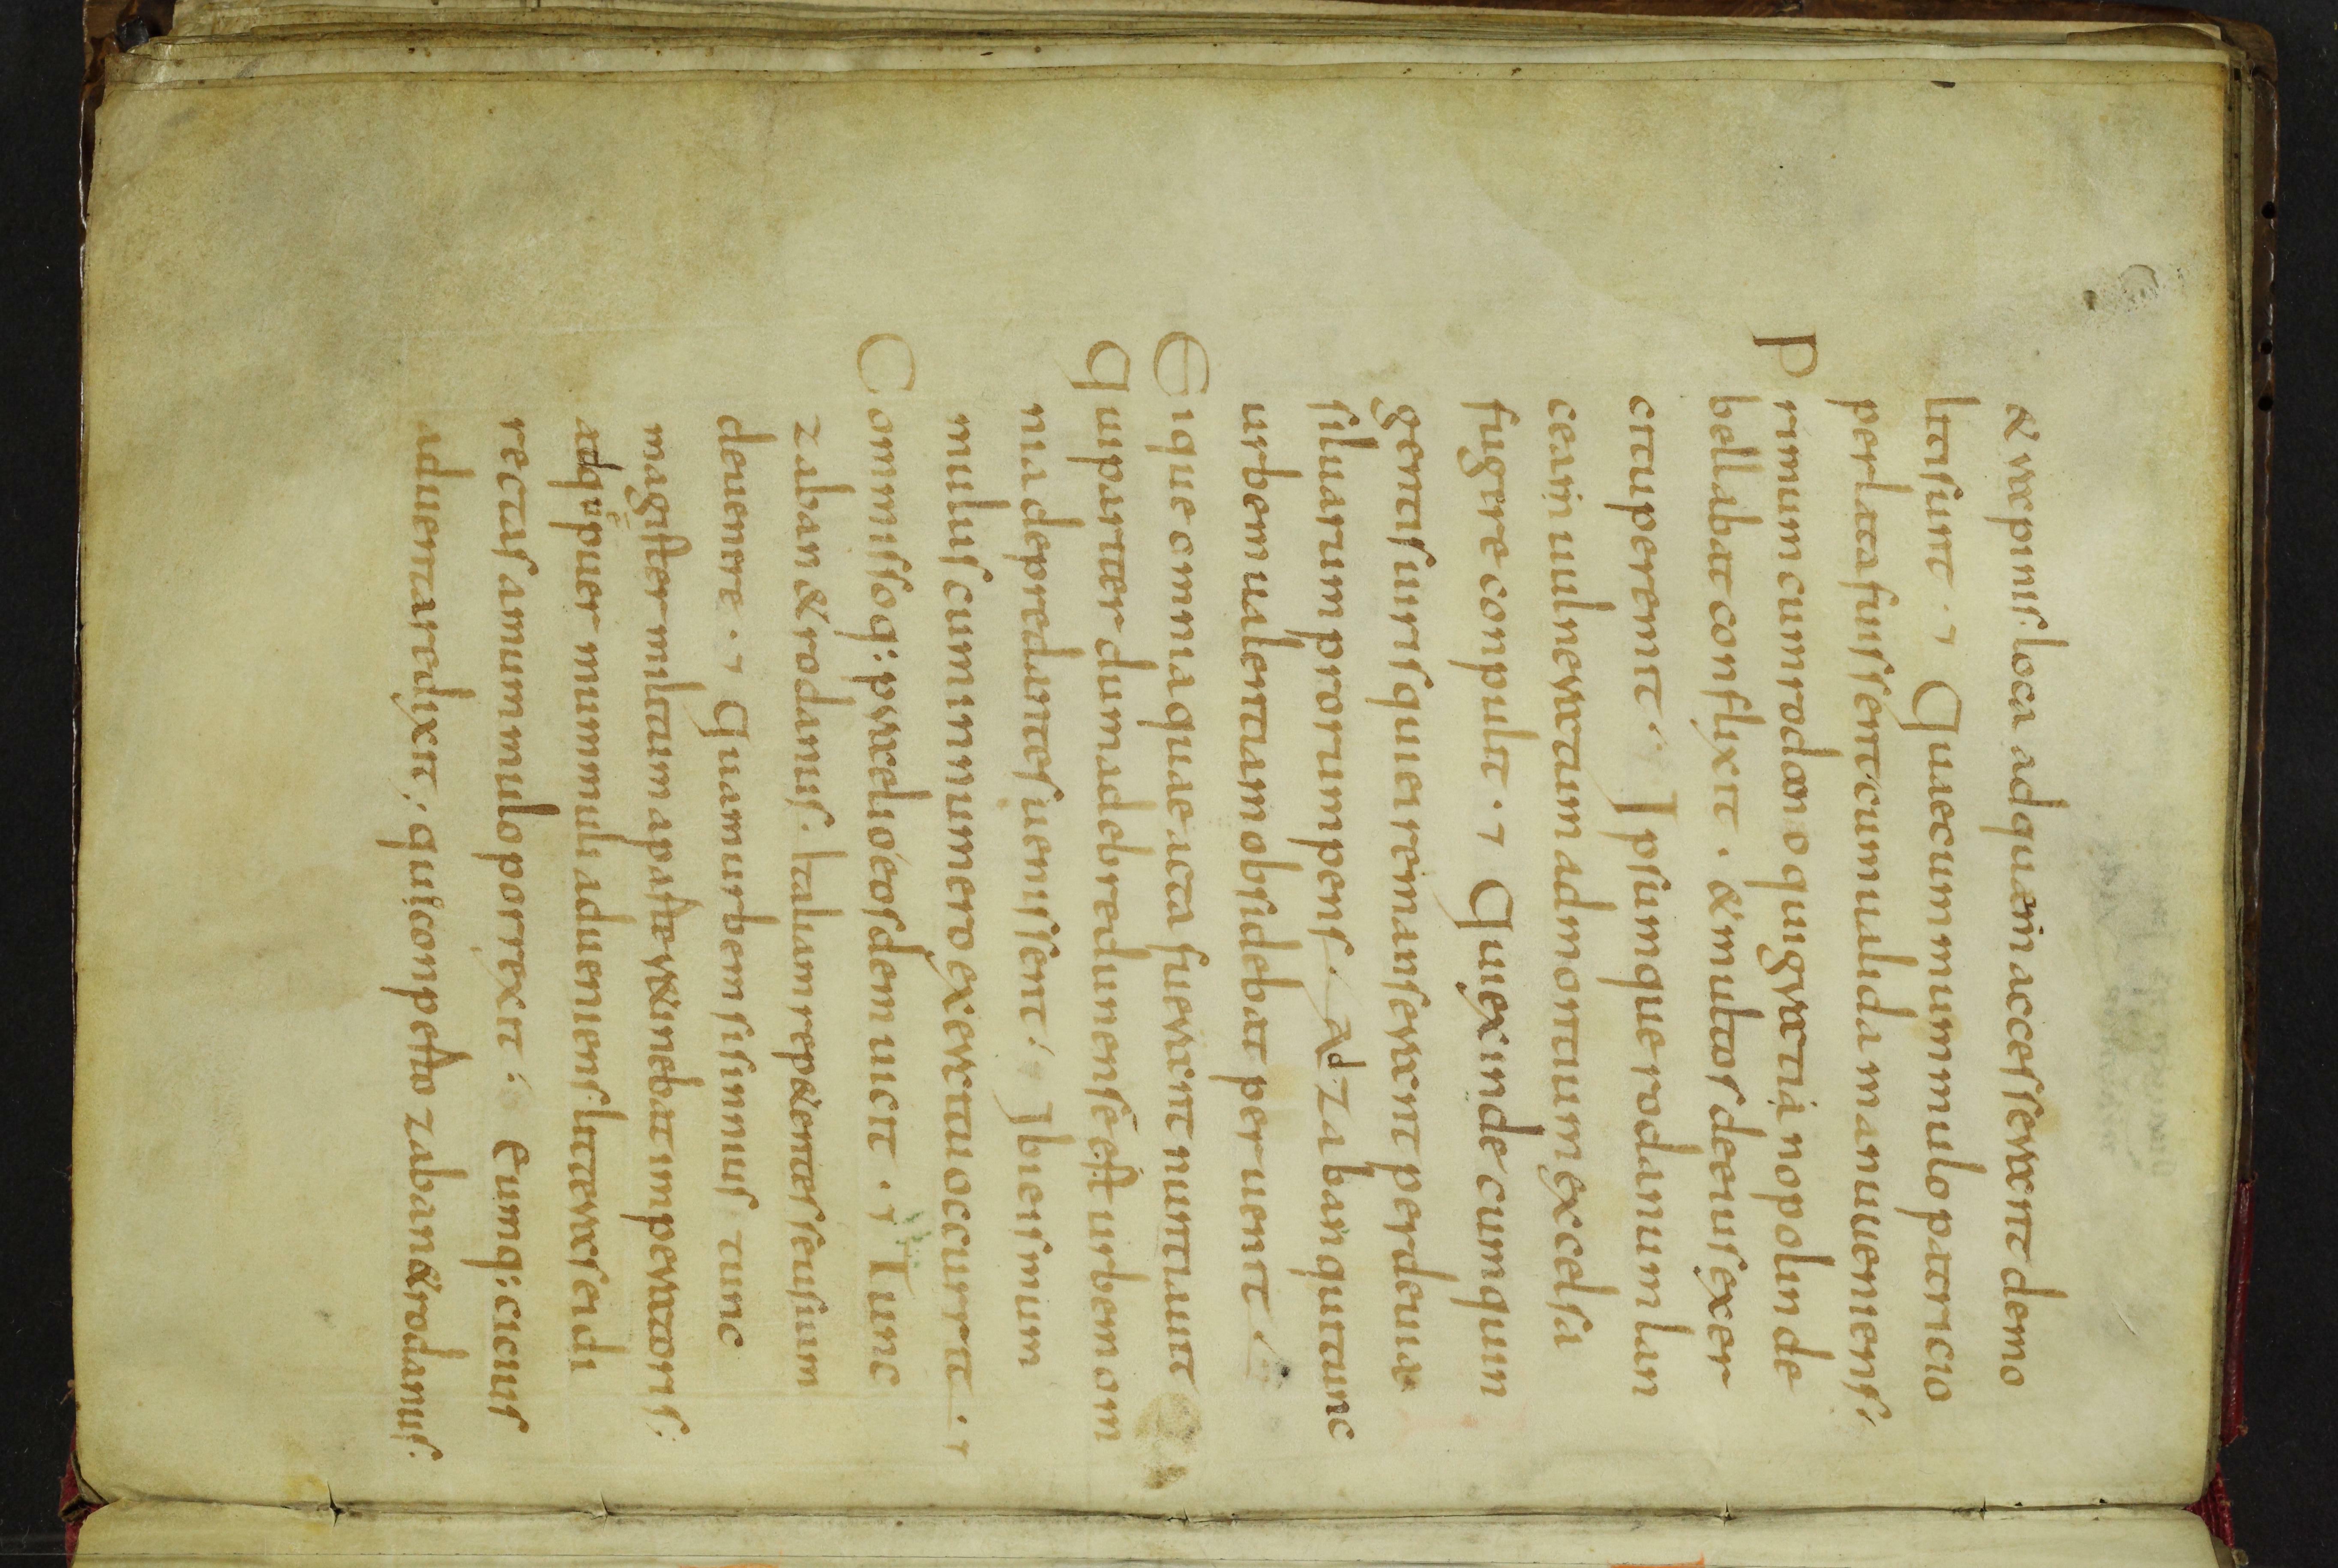 & rapinis. loca ad quae inaccesserant demo
lita sunt · Quae cum mummulo patricio
perlata fuissent cum ualida manu ueniens.
Primum cum rodano qui gratianopolim de
bellabat conflixit · & multos de eius exer
citu peremit · Ipsumque rodanum lan
cea inuulneratum ad montium excelsa
fugire conpulit · Qui exinde cum quin
gentis uiris qui ei remanserant per deuia
siluarum prorumpens. Ad zaban qui tunc
urbem ualentiam obsidebat peruenit.
Eique omnia quae acta fuerant nuntiauit
Qui pariter dum ad ebredunensē est urbem om
nia depredantes uenissent. Ibi eis mum
mulus cum innumero exercitu occurrit ·
Commissoq: praelio eos demuicit · Tunc
zaban & rodanus. Italiam repetentes seusium
deuenere · Quam urbem sisinnius tunc
magister militum a parte retinebat imperatoris.
ad quē puer mummuli adueniens litteras ei di
rectas a mummulo porrexit · Eumq: citius
aduentare dixit; quo conperto zaban & rodanus.